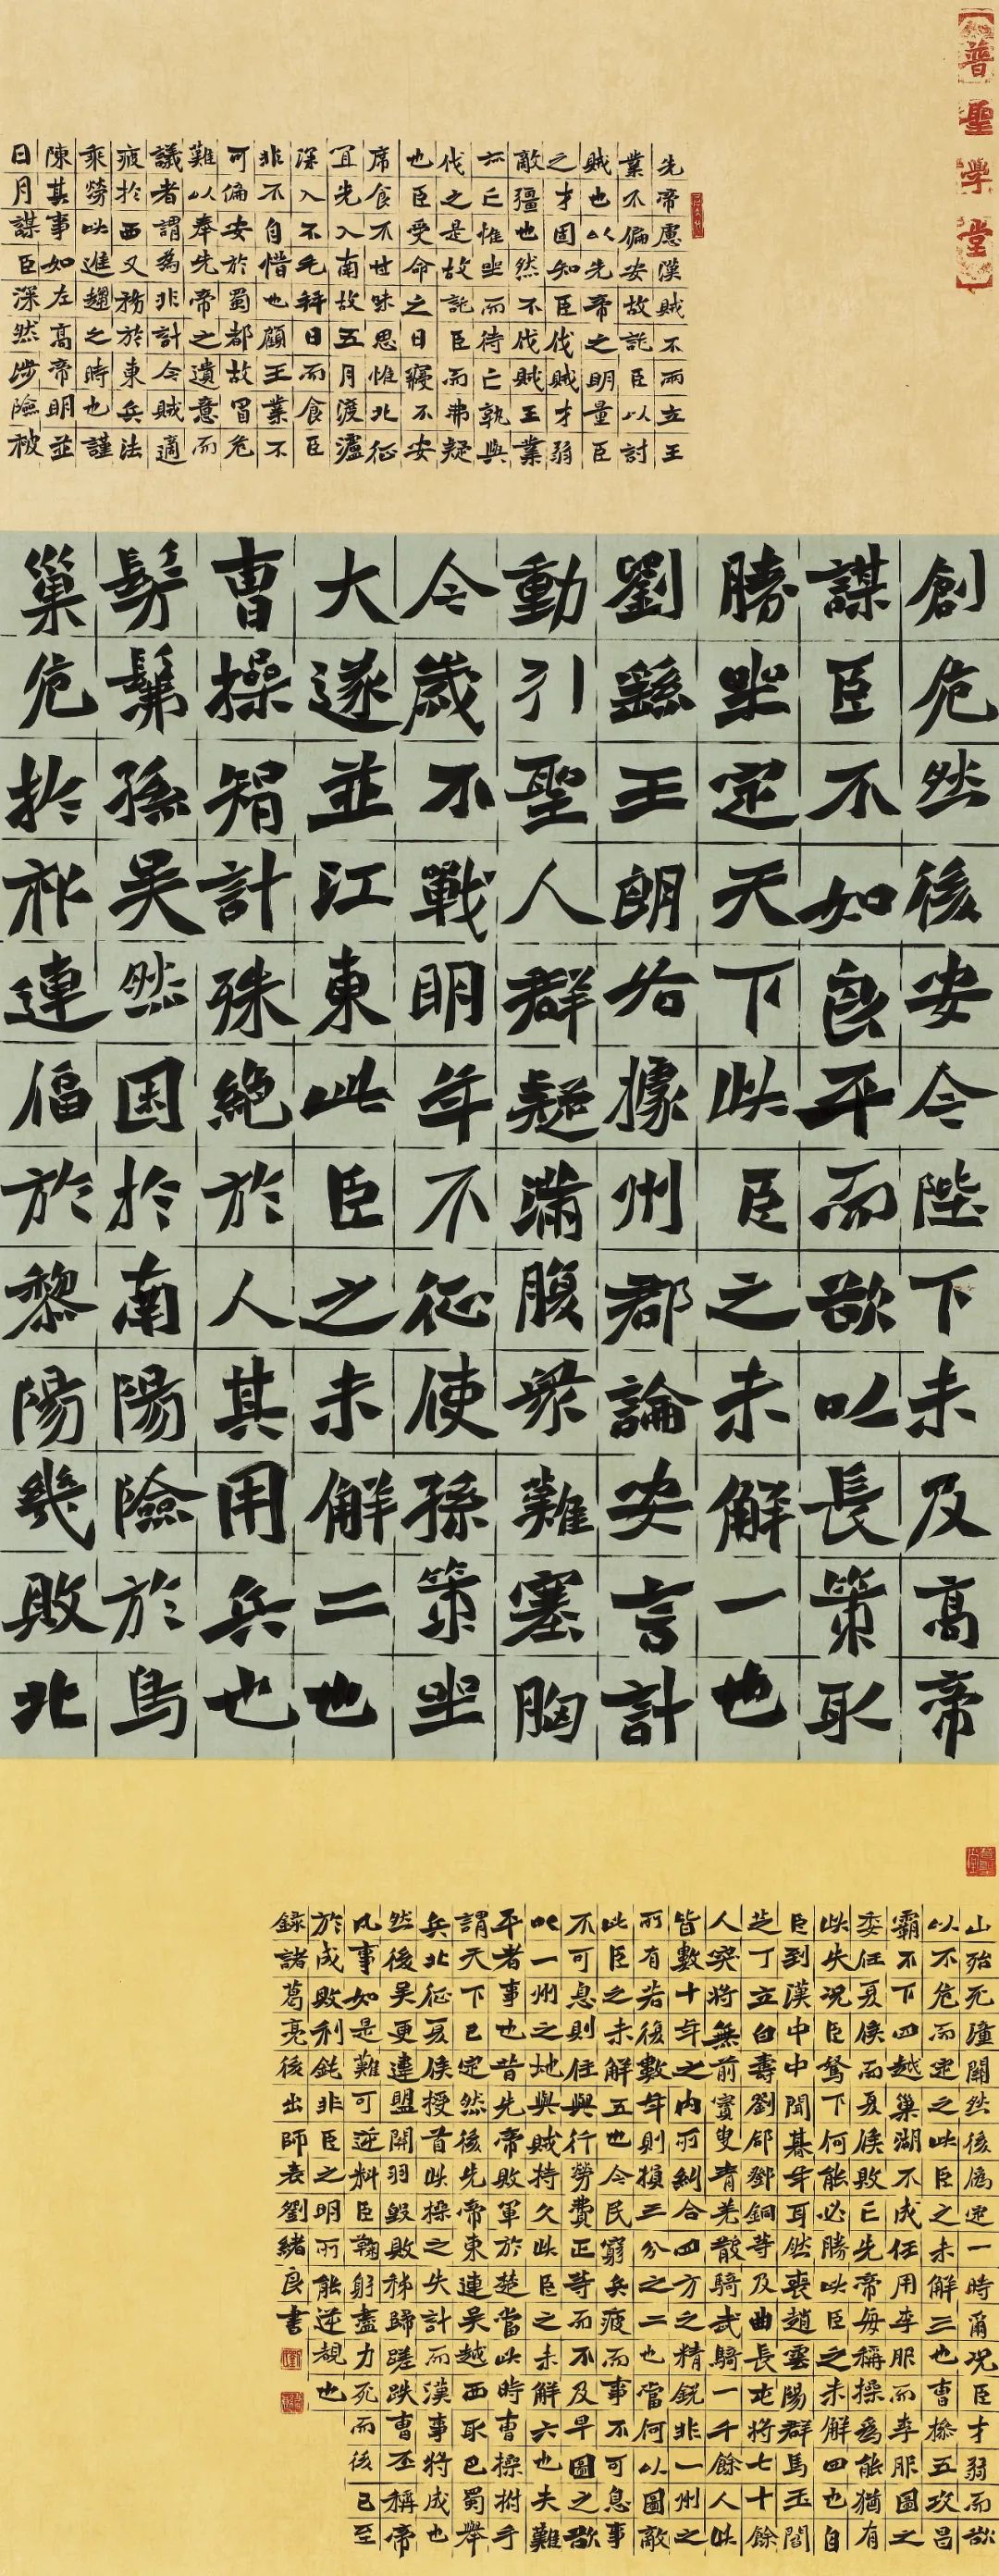 【普聖學堂】
先帝慮漢賊不兩立王
業不偏安故託臣以討
賊也以先帝之明量臣
之才固知臣伐賊才弱
敵彊也然不伐賊王業
亦亡惟坐而待亡孰與
伐之是故託臣而弗疑
也臣受命之日寢不安
席食不甘味思惟北征
宜先入南故五月渡瀘
深入不毛并日而食臣
非不自惜也顧王業不
可偏安於蜀都故冒危
難以奉先帝之遺意而
議者謂為非計今賊適
疲於西又務於東兵法
乘勞此進趨之時也謹
陳其事如左高帝明並
日月謀臣深然涉險被
創危然後安今陛下未及高帝
謀臣不如良平而欲以長策取
勝坐定天下此臣之未解一也
劉繇王朗各據州郡論安言計
動引聖人群疑滿腹眾難塞胸
今歲不戰明年不征使孫策坐
大遂並江東此臣之未解二也
曹操智計殊絕於人其用兵也
髣髴孫吳然困於南陽險於烏
巢危於祁連偪於黎陽幾敗北
山殆死潼關然後偽定一時爾況臣才弱而欲
以不危而定之此臣之未解三也曹操五攻昌
霸不下四越巢湖不成任用李服而李服圖之
委任夏侯而夏侯敗亡先帝每稱操為能猶有
此失況臣駑下何能必勝此臣之未解四也自
臣到漢中中間朞年耳然喪趙雲陽群馬玉閻
芝丁立白壽劉郃鄧銅等及曲長屯將七十餘
人突將無前賨叟青羌散騎武騎一千餘人此
皆數十年之內所糾合四方之精銳非一州之
所有若復數年則損三分之二也當何以圖敵
此臣之未解五也今民窮兵疲而事不可息事
不可息則住與行勞費正等而不及早圖之欲
以一州之地與賊持久此臣之未解六也夫難
平者事也昔先帝敗軍於楚當此時曹操拊手
謂天下已定然後先帝東連吳越西取巴蜀舉
兵北征夏侯授首此操之失計而漢事將成也
然後吳更違盟關羽毀敗秭歸蹉跌曹丕稱帝
凡事如是難可逆料臣鞠躬盡力死而後已至
於成敗利鈍非臣之明所能逆覩也
錄諸葛亮後出師表劉緒良書